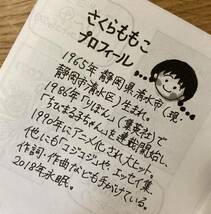 さくらももこ
プロフィール…
1965年静岡県清水市(現・
静岡市清水区)生まれ。
1986年「りぼん」(集英社)で
「ちびまる子ちゃん」を連載開始し、
1990年にアニメ化され大ヒット。
他にも「コジコジ」や、エッセイ集、
作詞・作曲なども手がけている。
2018年永眠。